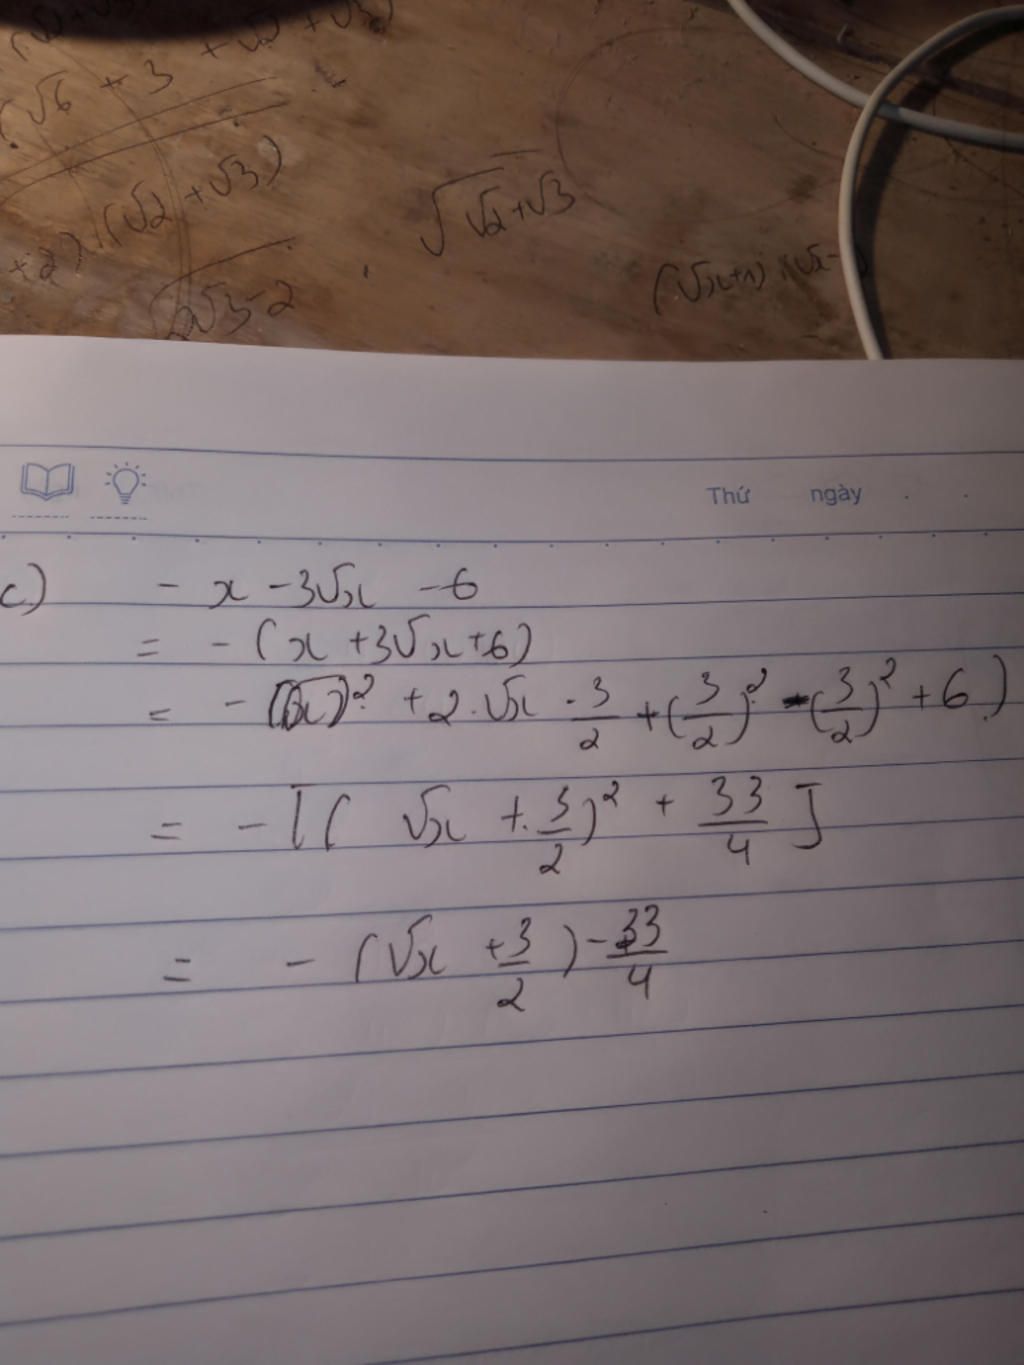 (√6 + 3 + √
+2).(√2 + √3)
√√2+√3
√2√3-2
(√x+1).(√x-
Thứ ngày
c) - x - 3√x - 6
= - (x + 3√x + 6)
= - ((√x)² + 2.√x . 3/2 + (3/2)² - (3/2)² + 6)
= - [( √x + 3/2)² + 33/4]
= - (√x + 3/2) - 33/4